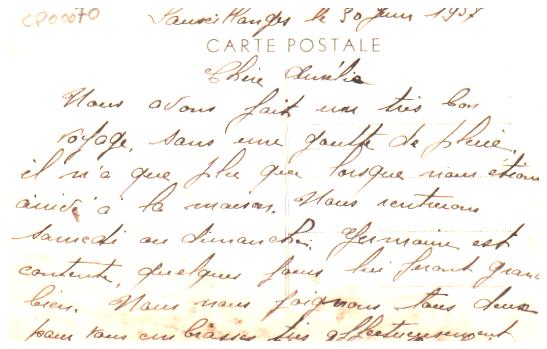 CP00070
le 30 Juin 1937
CARTE POSTALE
Chère Aurélie
Nous avons fait un très bon
voyage, sans une goutte de pluie,
il n'a que plu que lorsque nous étions
arrivé à la maison. Nous rentrerons
samedi ou dimanche. Germaine est
contente, quelques jours lui feront grand
bien. Nous nous joignons tous deux
pour vous embrasser très affectueusement